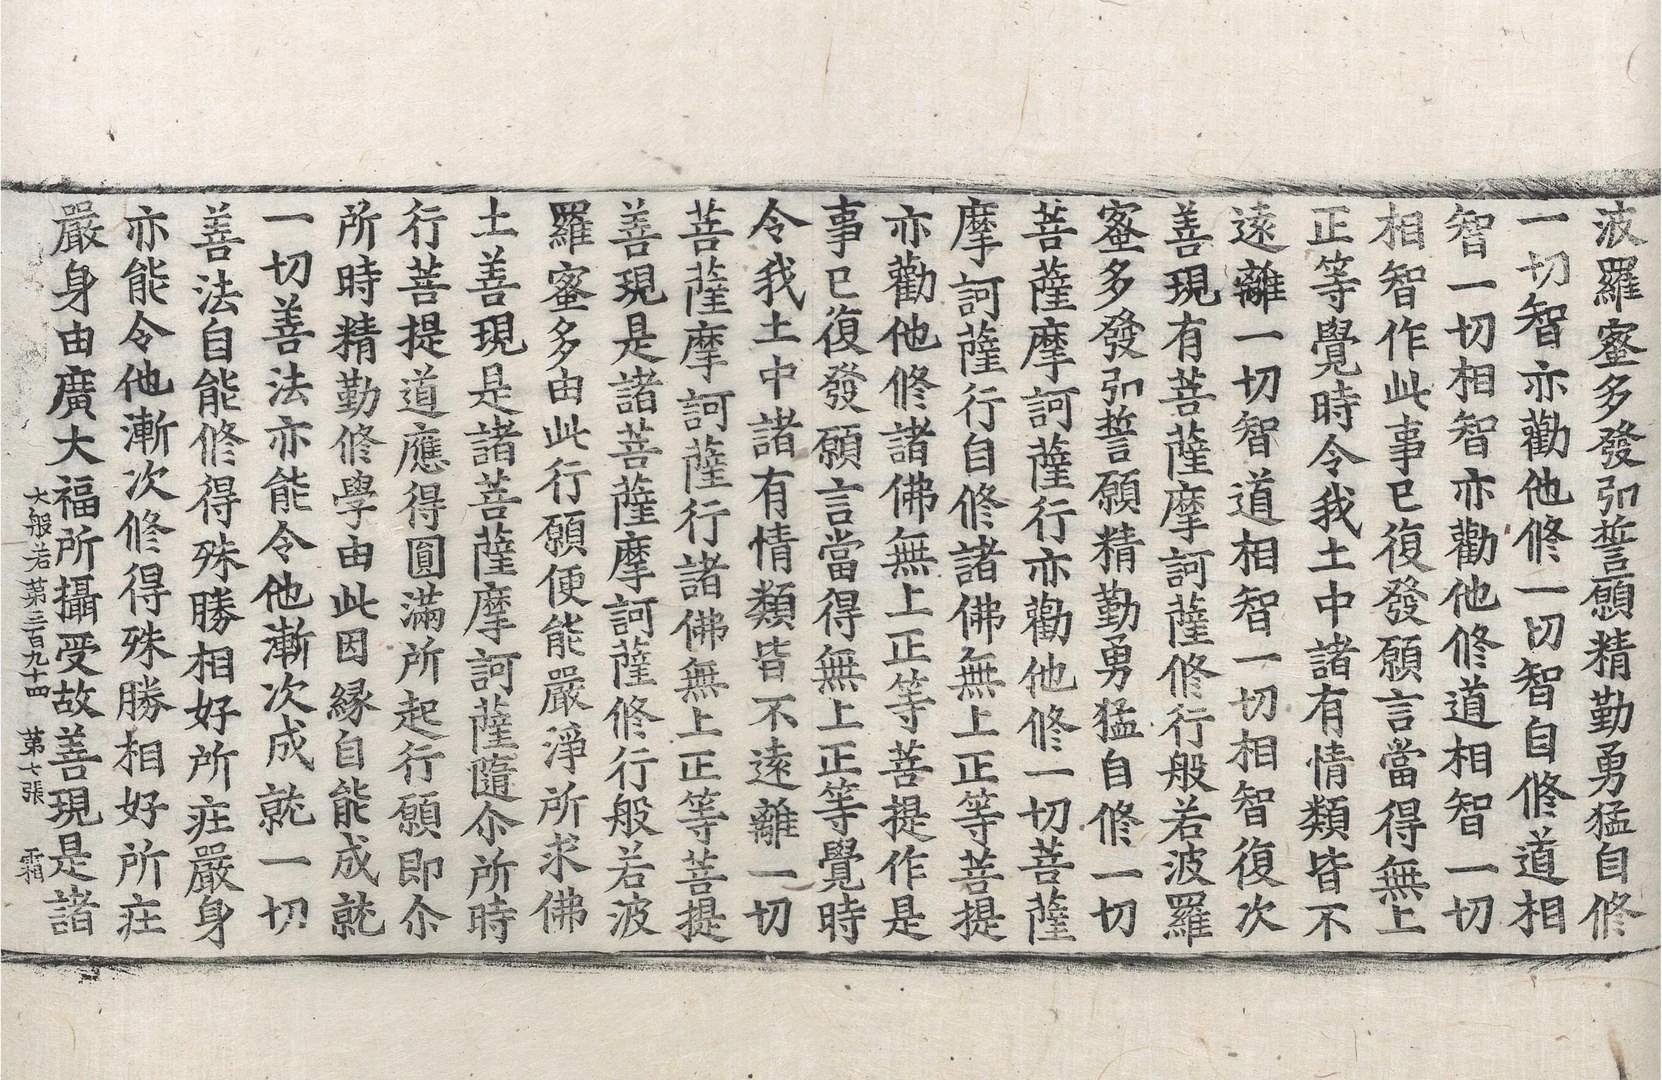 波羅蜜多發弘誓願精勤勇猛自修
一切智亦勸他修一切智自修道相
智一切相智亦勸他修道相智一切
相智作此事已復發願言當得無上
正等覺時令我土中諸有情類皆不
遠離一切智道相智一切相智復次
善現有菩薩摩訶薩修行般若波羅
蜜多發弘誓願精勤勇猛自修一切
菩薩摩訶薩行亦勸他修一切菩薩
摩訶薩行自修諸佛無上正等菩提
亦勸他修諸佛無上正等菩提作是
事已復發願言當得無上正等覺時
令我土中諸有情類皆不遠離一切
菩薩摩訶薩行諸佛無上正等菩提
善現是諸菩薩摩訶薩修行般若波
羅蜜多由此行願便能嚴淨所求佛
土善現是諸菩薩摩訶薩隨尒所時
行菩提道應得圓滿所起行願即尒
所時精勤修學由此因緣自能成就
一切善法亦能令他漸次成就一切
善法自能修得殊勝相好所莊嚴身
亦能令他漸次修得殊勝相好所莊
嚴身由廣大福所攝受故善現是諸
大般若第三百九十四 第七張 霜